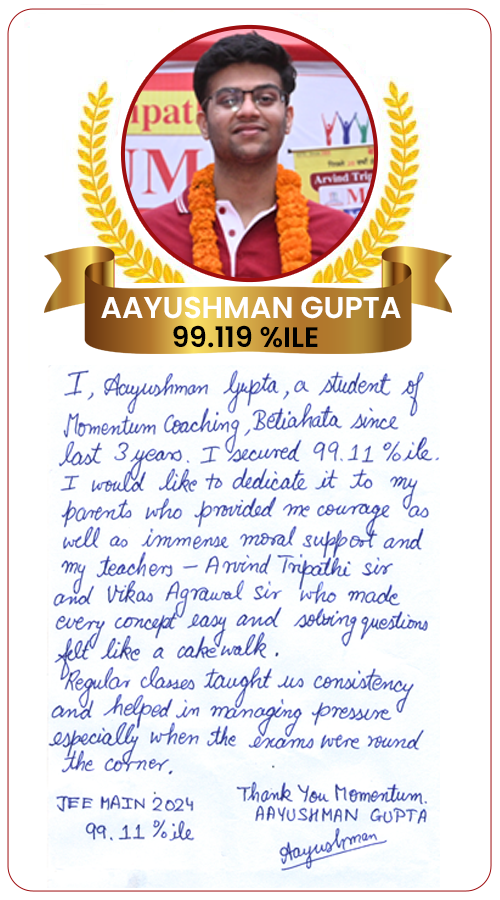 upat
UM
Arvind Trip
M
AAYUSHMAN GUPTA
99.119 %ILE
I, Aayushman Gupta, a student of
Momentum Coaching, Betiahata since
last 3 years. I secured 99.11 %ile.
I would like to dedicate it to my
parents who provided me courage as
well as immense moral support and
my teachers – Arvind Tripathi sir
and Vikas Agrawal sir who made
every concept easy and solving questions
felt like a cakewalk.
Regular classes taught us consistency
and helped in managing pressure
especially when the exams were round
the corner.
Thank You Momentum.
JEE MAIN 2024
AAYUSHMAN GUPTA
99.11 %ile
Aayushman